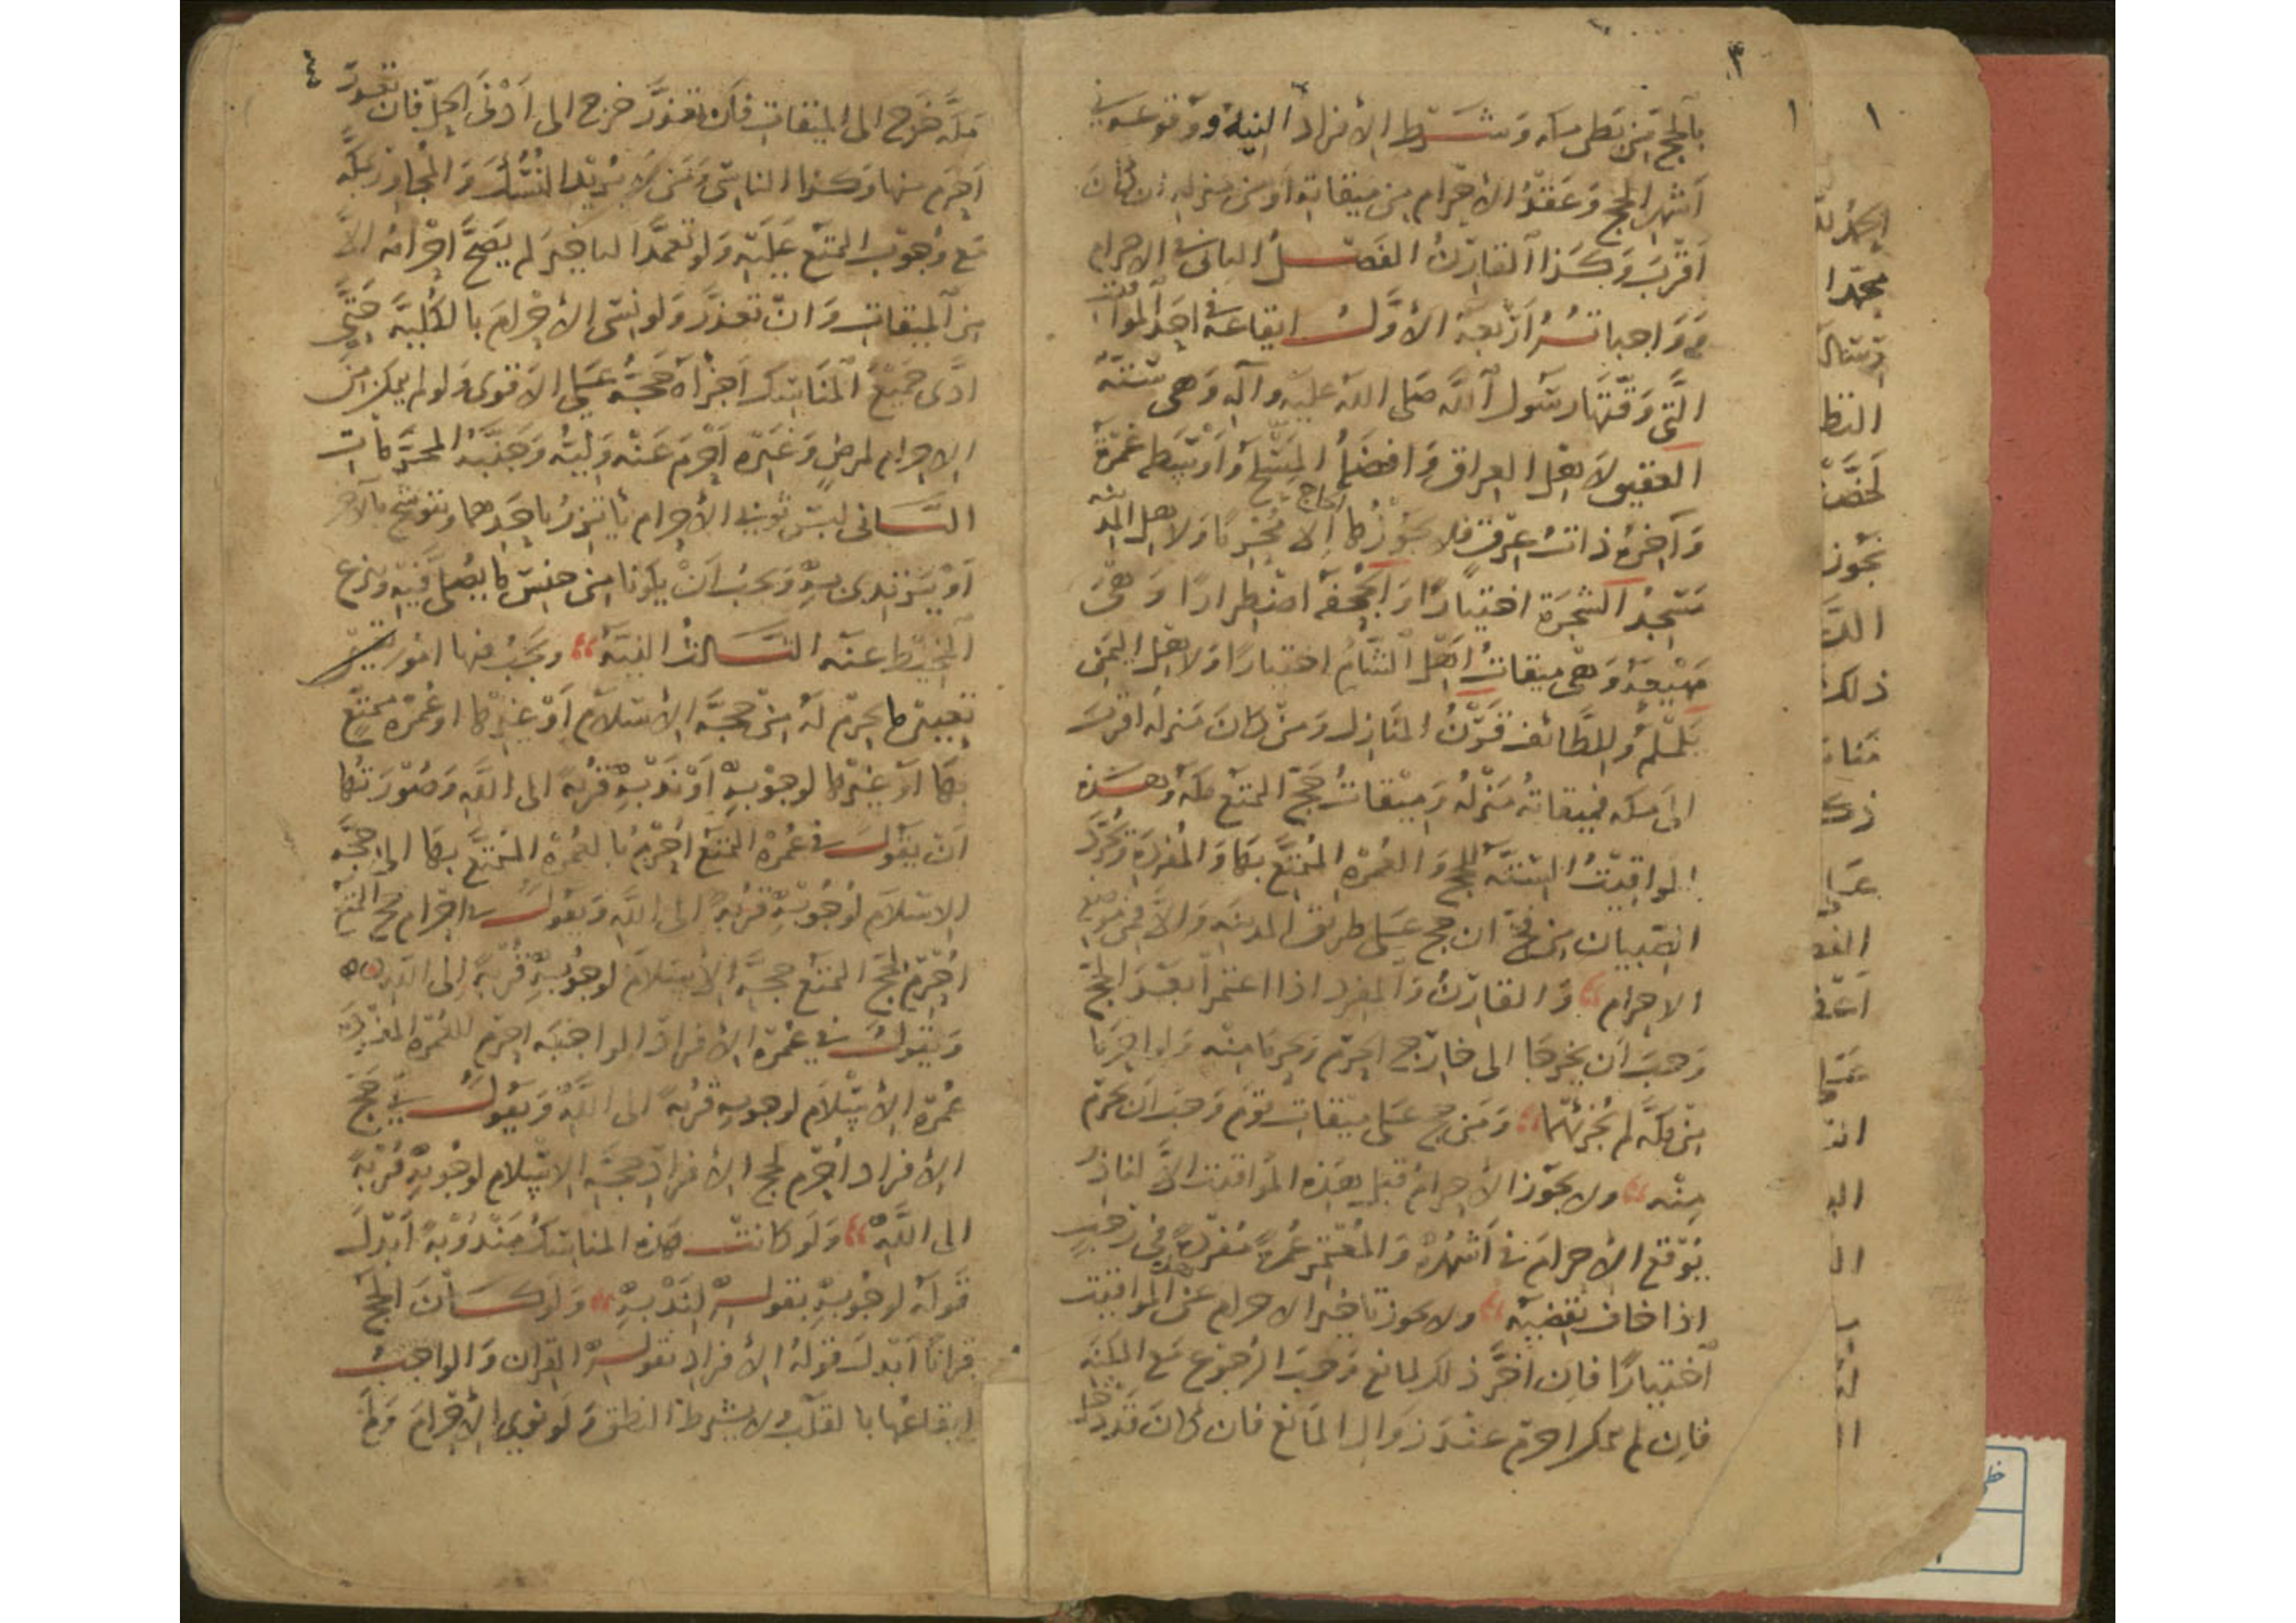 ٣
بالحج من بطن مكه وشرط الافراد النية ووقوعه في
أشهر الحج وعقد الاحرام من ميقاته أو من منزله إن كان
أقرب وكذا القارن الفصل الثاني في الاحرام
وواجباته أربعة الأول ايقاعه في احد المواقيت
التي وقتها رسول الله صلى الله عليه وآله وهي ستة
العقيق لاهل العراق وافضله المسلخ وأوسطه غمرة
وآخره ذات عرق فلا يجوزها الحاج إلا محرما ولاهل المدينة
مسجد الشجرة اختيارا والجحفة اضطرارا وهي
مهيعة وهي ميقات اهل الشام اختيارا ولاهل اليمن
يلملم وللطائف قرن المنازل ومن كان منزله اقرب
الى مكه فميقاته منزله وميقات حج التمتع مكة وهذه
المواقيت الستة للحج والعمرة المتمتع بها والمفردة وتجرد
الصبيان من فخ ان حج على طريق المدينه والا فمن موضع
الاحرام والقارن والمفرد اذا اعتمرا بعد الحج
وجب أن يخرجا الى خارج الحرم ويحرما منه ولو احرما
من مكة لم يجزئهما ومن حج على ميقات قوم وجب أن يحرم
منه ولا يجوز الاحرام قبل هذه المواقيت الا لناذر
يوقع الاحرام في أشهره والمعتمر عمرة مفردة في رجب
اذا خاف تقضيه ولا يجوز تاخير الاحرام عن المواقيت
اختيارا فان أخر ذلك لمانع وجب الرجوع مع المكنة
فان لم يمكن احرم عند زوال المانع فان كان قد دخل
مكة خرج الى الميقات فان تعذر خرج الى أدنى الحل فان تعذر
احرم منها وكذا الناسي ومن لا يريد النسك والمجاور بمكة
مع وجوب التمتع عليه ولو تعمد التاخير لم يصح احرامه الا
من الميقات وان تعذر ولو نسى الاحرام بالكلية حتى
ادى جميع المناسك اجزأه حجه على الاقوى ولو لم يمكن من
الاحرام لمرض وغيره احرم عنه وليه وجنبه المحرمات
الثاني لبس ثوبي الاحرام يأتزر باحدهما ويتوشح بالآخر
أو يرتدى به ويجب أن يكونا من جنس ما يصلى فيه ونزع
المخيط عنه الثالث النية ويجب فيها امور
تعيين ما يحرم له من حجة الاسلام أو غيرها أو عمرة متمتع
بها أو غيرها لوجوبه أو ندبه قربة الى الله وصورتها
أن يقول في عمرة التمتع أحرم بالعمرة المتمتع بها الى حجة
الاسلام لوجوبه قربة الى الله ويقول في احرام حج التمتع
أحرم لحج التمتع حجة الاسلام لوجوبه قربة إلى الله
ويقول في عمرة الافراد الواجبه احرم للعمرة المفردة
عمرة الاسلام لوجوبه قربة الى الله ويقول في حج
الافراد أحرم لحج الافراد حجة الاسلام لوجوبه قربة
الى الله ولو كانت هذه المناسك مندوبة أبدل
قوله لوجوبه بقوله لندبه ولو كان الحج
قرانا أبدل قوله الافراد بقوله القران والواجب
ايقاعها بالقلب ولا يشترط النطق ولو نوى الاحرام ولم